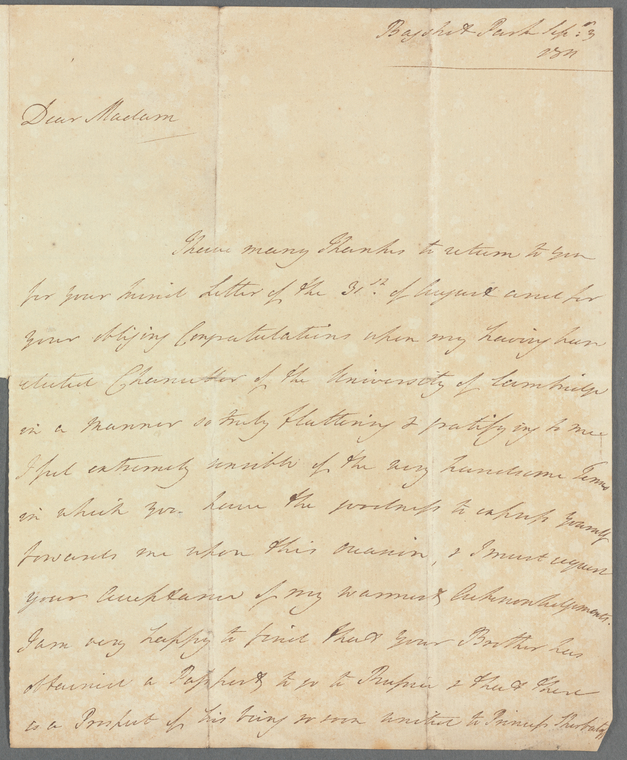 Bagshot Park Sepr: 3
1811
Dear Madam
I have many Thanks to return to you
for your kind Letter of the 31st. of August and for
your obliging Congratulations upon my having been
elected Chancellor of the University of Cambridge
in a manner so truly flattering & gratifying to me
I feel extremely sensible of the very handsome Terms
in which you have the goodness to express yourself
towards me upon this occasion, & I must request
your Acceptance of my warmest Acknowledgements.
I am very happy to find that your Brother has
obtained a Passport to go to Prussia & that there
is a Prospect of his being so soon united to Princess